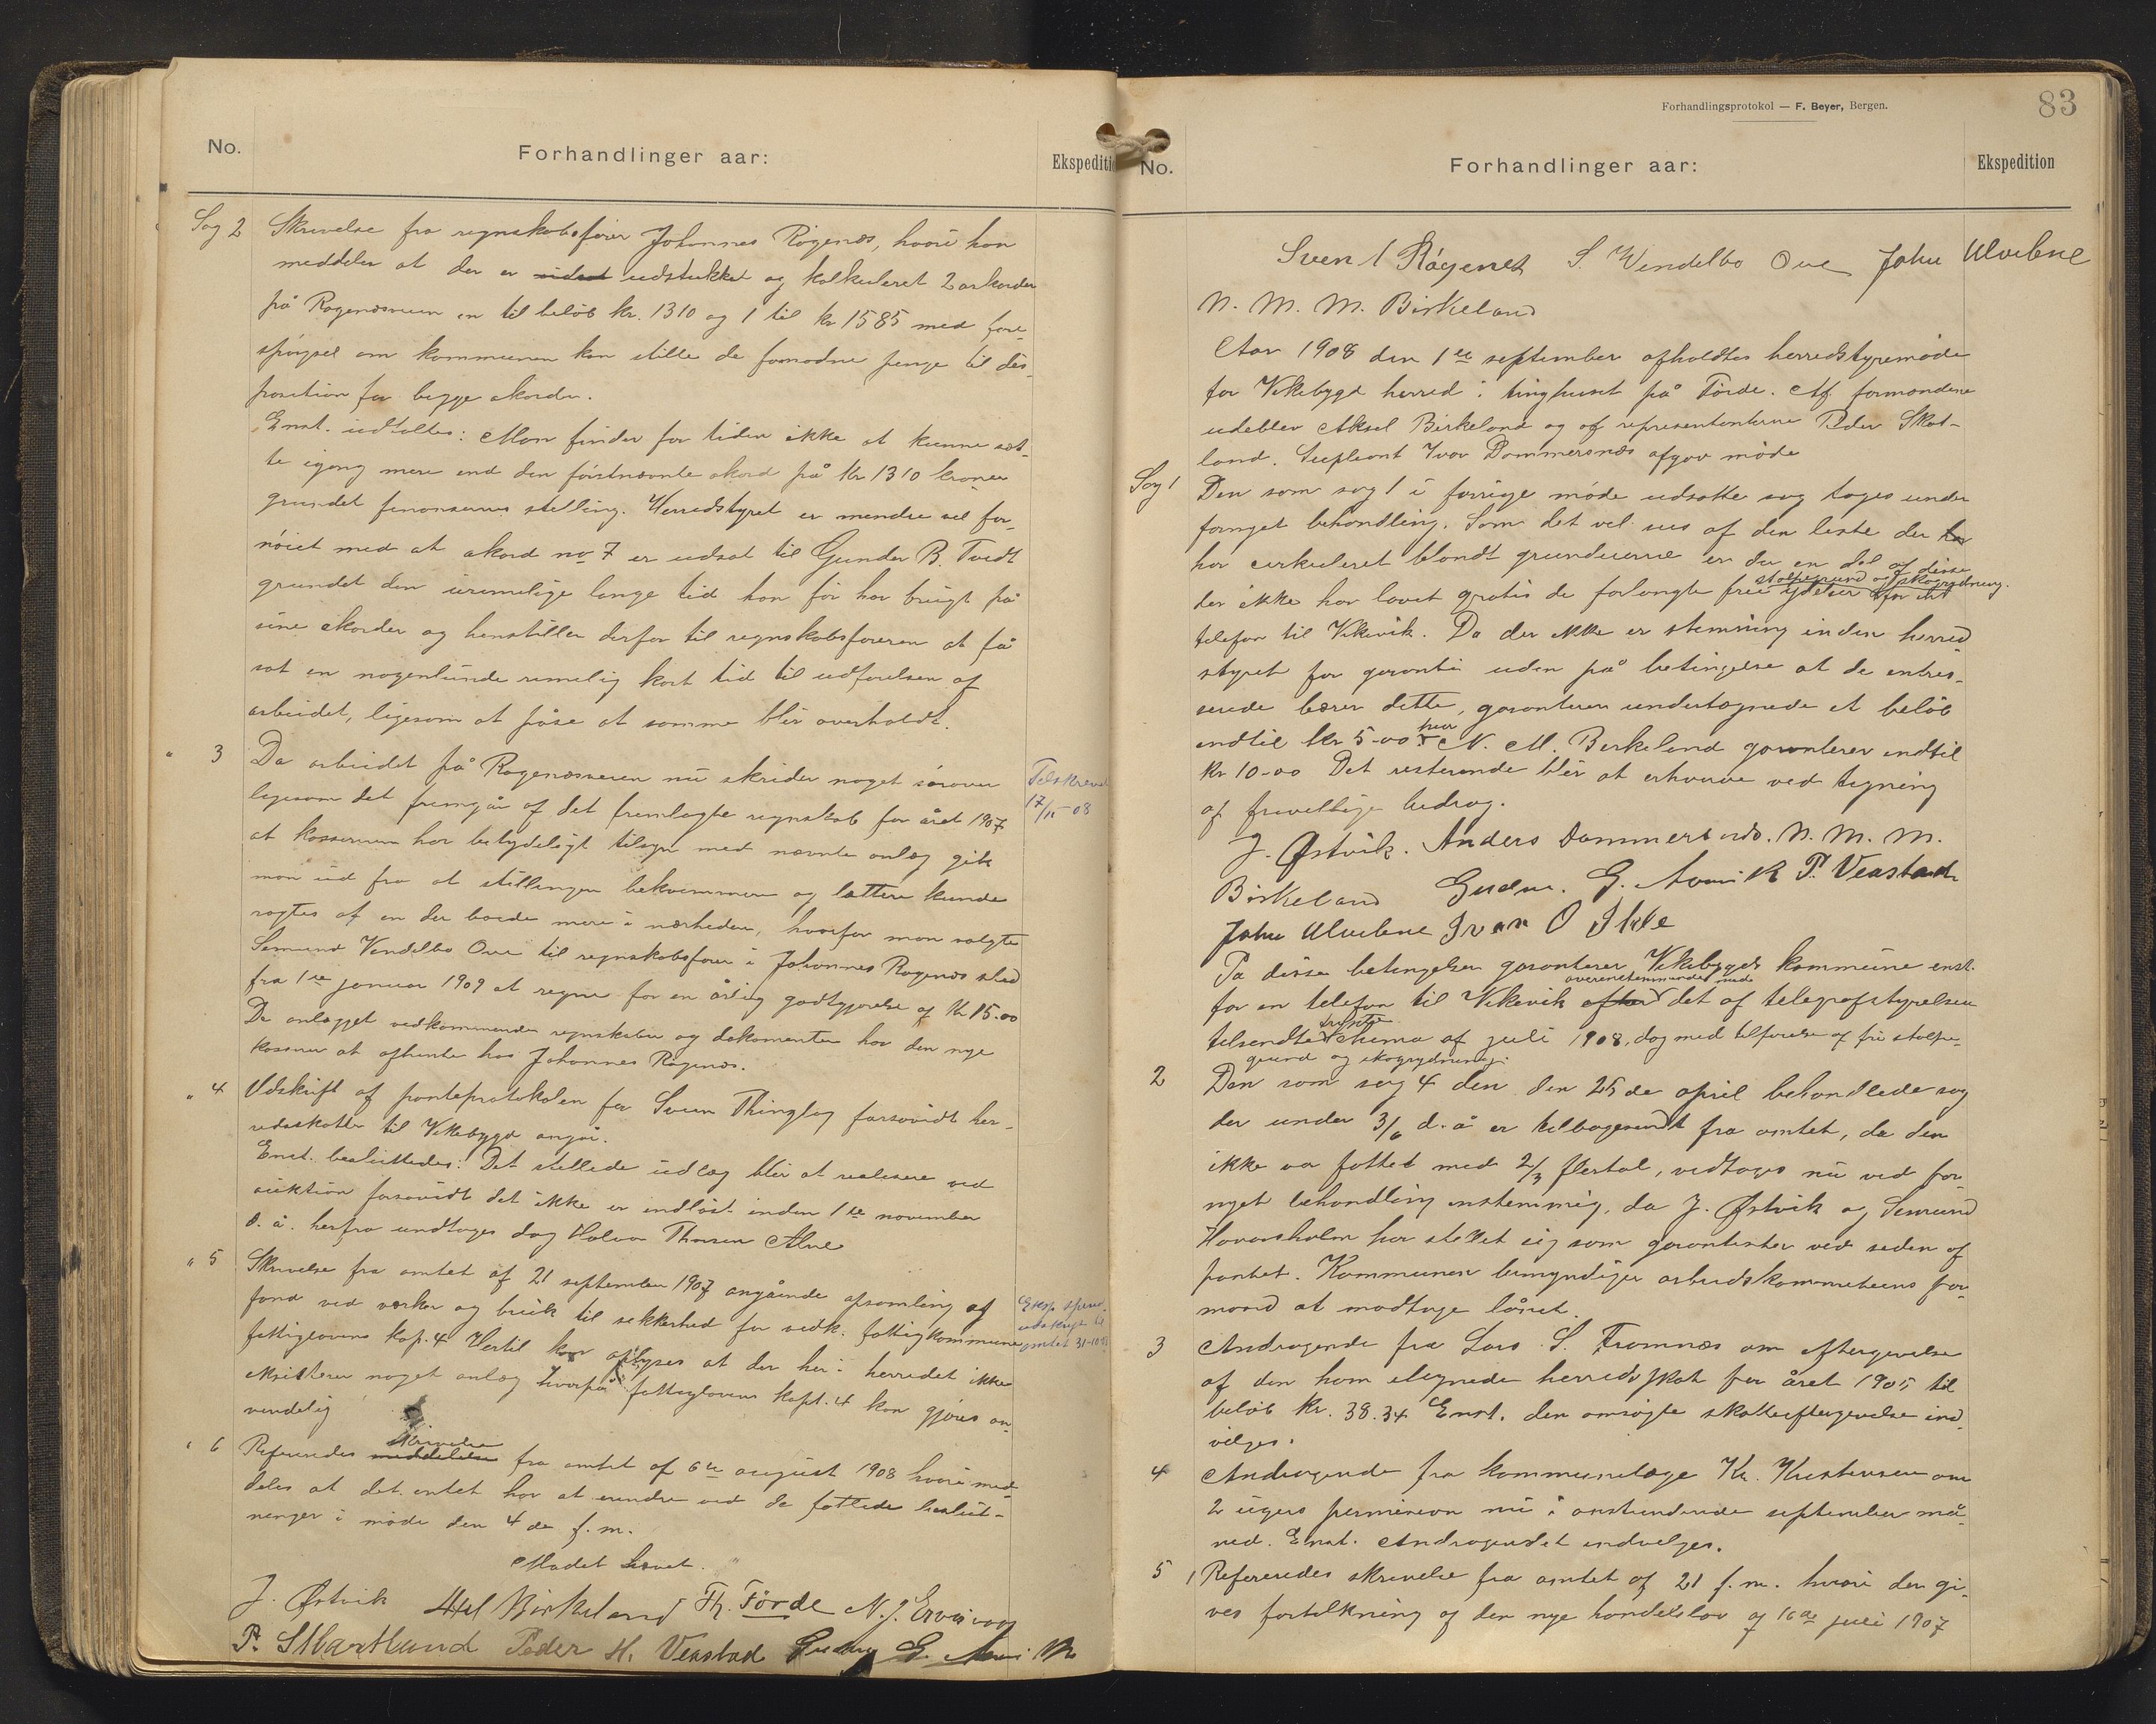 No.
Forhandlinger aar:
Ekspediti
Sag 2 Skrivelse fra regnskabsfører Johannes Røgenæs, hvori han
meddeler at der er udstukket og kalkuleret 2 akorder
på Røgenæsveien en til beløb kr. 1310 og 1 til kr 1585 med fore-
spørgsel om kommunen kan stille de fornødne penge til dis-
position for begge akorder.
Enst. udtaltes: Man finder for tiden ikke at kunne sæt-
te igang mere end den førstnævnte akord på kr 1310 kroner
grundet finansernes stilling. Herredstyret er mendre vel for-
nøiet med at akord no 7 er udsat til Gunder B. Tvedt
grundet den urimelige lange tid han før har brugt på
sine akorder og henstiller derfor til regnskabsføreren at få
sat en nogenlunde rimelig kort tid til udførelsen af
arbeidet, ligesom at påse at samme blir overholdt.
" 3 Da arbeidet på Røgenæsveien nu skrider noget sørover
ligesom det fremgår af det fremlagte regnskab for året 1907
at kassereren har betydeligt tilsyn med nævnte anlæg gik
man ud fra at stillingen bekvemmere og lettere kunde
røgtes af en der boede mere i nærheden, hvorfor man valgte
Semund Vendelbo Ove til regnskabsfører i Johannes Røgenæs sted
fra 1ste januar 1909 at regne for en årlig godtgjørelse af Kr 15.00
De anlægget vedkommende regnskaber og dokumenter har den nye
kasserer at afhente hos Johannes Røgenæs.
Tilskrevet
17/11-08
" 4 Udskrift af panteprotokolen for Sveen Thinglag forsåvidt her-
redsskatter til Vikebygd angår.
Enst. besluttedes: Det stillede udlæg blir at realisere ved
auktion forsåvidt det ikke er indløst inden 1ste november
d. å. herfra undtages dog Halvor Thorsen Alne
" 5 Skrivelse fra amtet af 21 september 1907 angående opsamling af
fond ved værker og bruk til sikkerhed for vedk. fattigkommune
fattiglovens kap. 4 Hertil kan oplyses at der her i herredet ikke
eksisterer noget anlæg hvorpå fattiglovens kapt. 4 kan gjøres an-
vendelig
udskrift til
amtet 31-10-
" 6 Refereredes meddelelse skrivelse fra amtet af 6te august 1908 hvori med-
deles at det intet har at erindre ved de fattede beslut-
ninger i møde den 4de f. m.
Mødet hævet.
J. Østvik Aksel Birkeland Th. Førde
P. Skartland Peder H. Veastad
Forhandlingsprotokol — F. Beyer, Bergen.
83
No.
Forhandlinger aar:
Ekspedition
Sven Røgenes S. Wendelbo Ove John Ulvebne
N. M. M. Birkeland
Aar 1908 den 1ste september afholdtes herredstyremøde
for Vikebygd herred i tinghuset på Førde. Af formændene
udeblev Aksel Birkeland og af representanterne Peder Skat-
land. Supleant Ivar Dommersnæs afgav møde
Sag 1 Den som sag 1 i forrige møde udsatte sag toges under
fornyet behandling. Som det vil sees af den liste der
har cirkuleret blandt grundeierne er der en del af disse
der ikke har lovet gratis de forlangte frie stolpegrund og skogrydning. ydelser for en
telefon til Vikevik. Da der ikke er stemning inden herred
styret for garanti uden på betingelse at de intres-
serede bærer dette, garanterer undertegnede et beløb
indtil kr 5-00 hver N. M. Birkeland garanterer indtil
Kr 10-00 Det resterende blir at erhverve ved tegning
af frivellige bidrag.
J. Østvik. Anders Dommersnæs. N. M. M.
Birkeland Gudm. G. P. Veastad
John Ulvebne Ivar O
Pa disse betingelser garanterer Vikebygds kommune enst.
for en telefon til Vikevik efter overensstemmende med det af telegrafstyrelsen
tilsendte skema af juli 1908, dog med tilføielse af fri stolpe-
grund og skogrydning.
2 Den som sag 4 den den 25de april behandlede sag
der under 3/6 d. å er tilbagesendt fra amtet, da den
ikke var fattet med 2/3 flertal, vedtages nu ved for-
nyet behandling enstemmig, da J. Østvik og Semund
Hovarsholm har stellet sig som garantister ved seden af
pantet. Kommunen bemyndiger arbeidskommiteens for-
mand at modtage lånet.
3 Andragende fra Lars S. Framnæs om eftergivelse
af den ham ilegnede herredsskat for året 1905 til
beløb kr. 38.34 Enst. den ansøgte skatteeftergivelse ind-
vilges.
4 Andragende fra kommunelæge Kr. Kristensen om
2 ugers permission nu i anstundende september må-
ned. Enst. Andragendet indvelges.
5 1 Refereredes skrivelse fra amtet af 21 f. m. hvori der gi-
ves fortolkning af den nye handelslov af 16de juli 1907